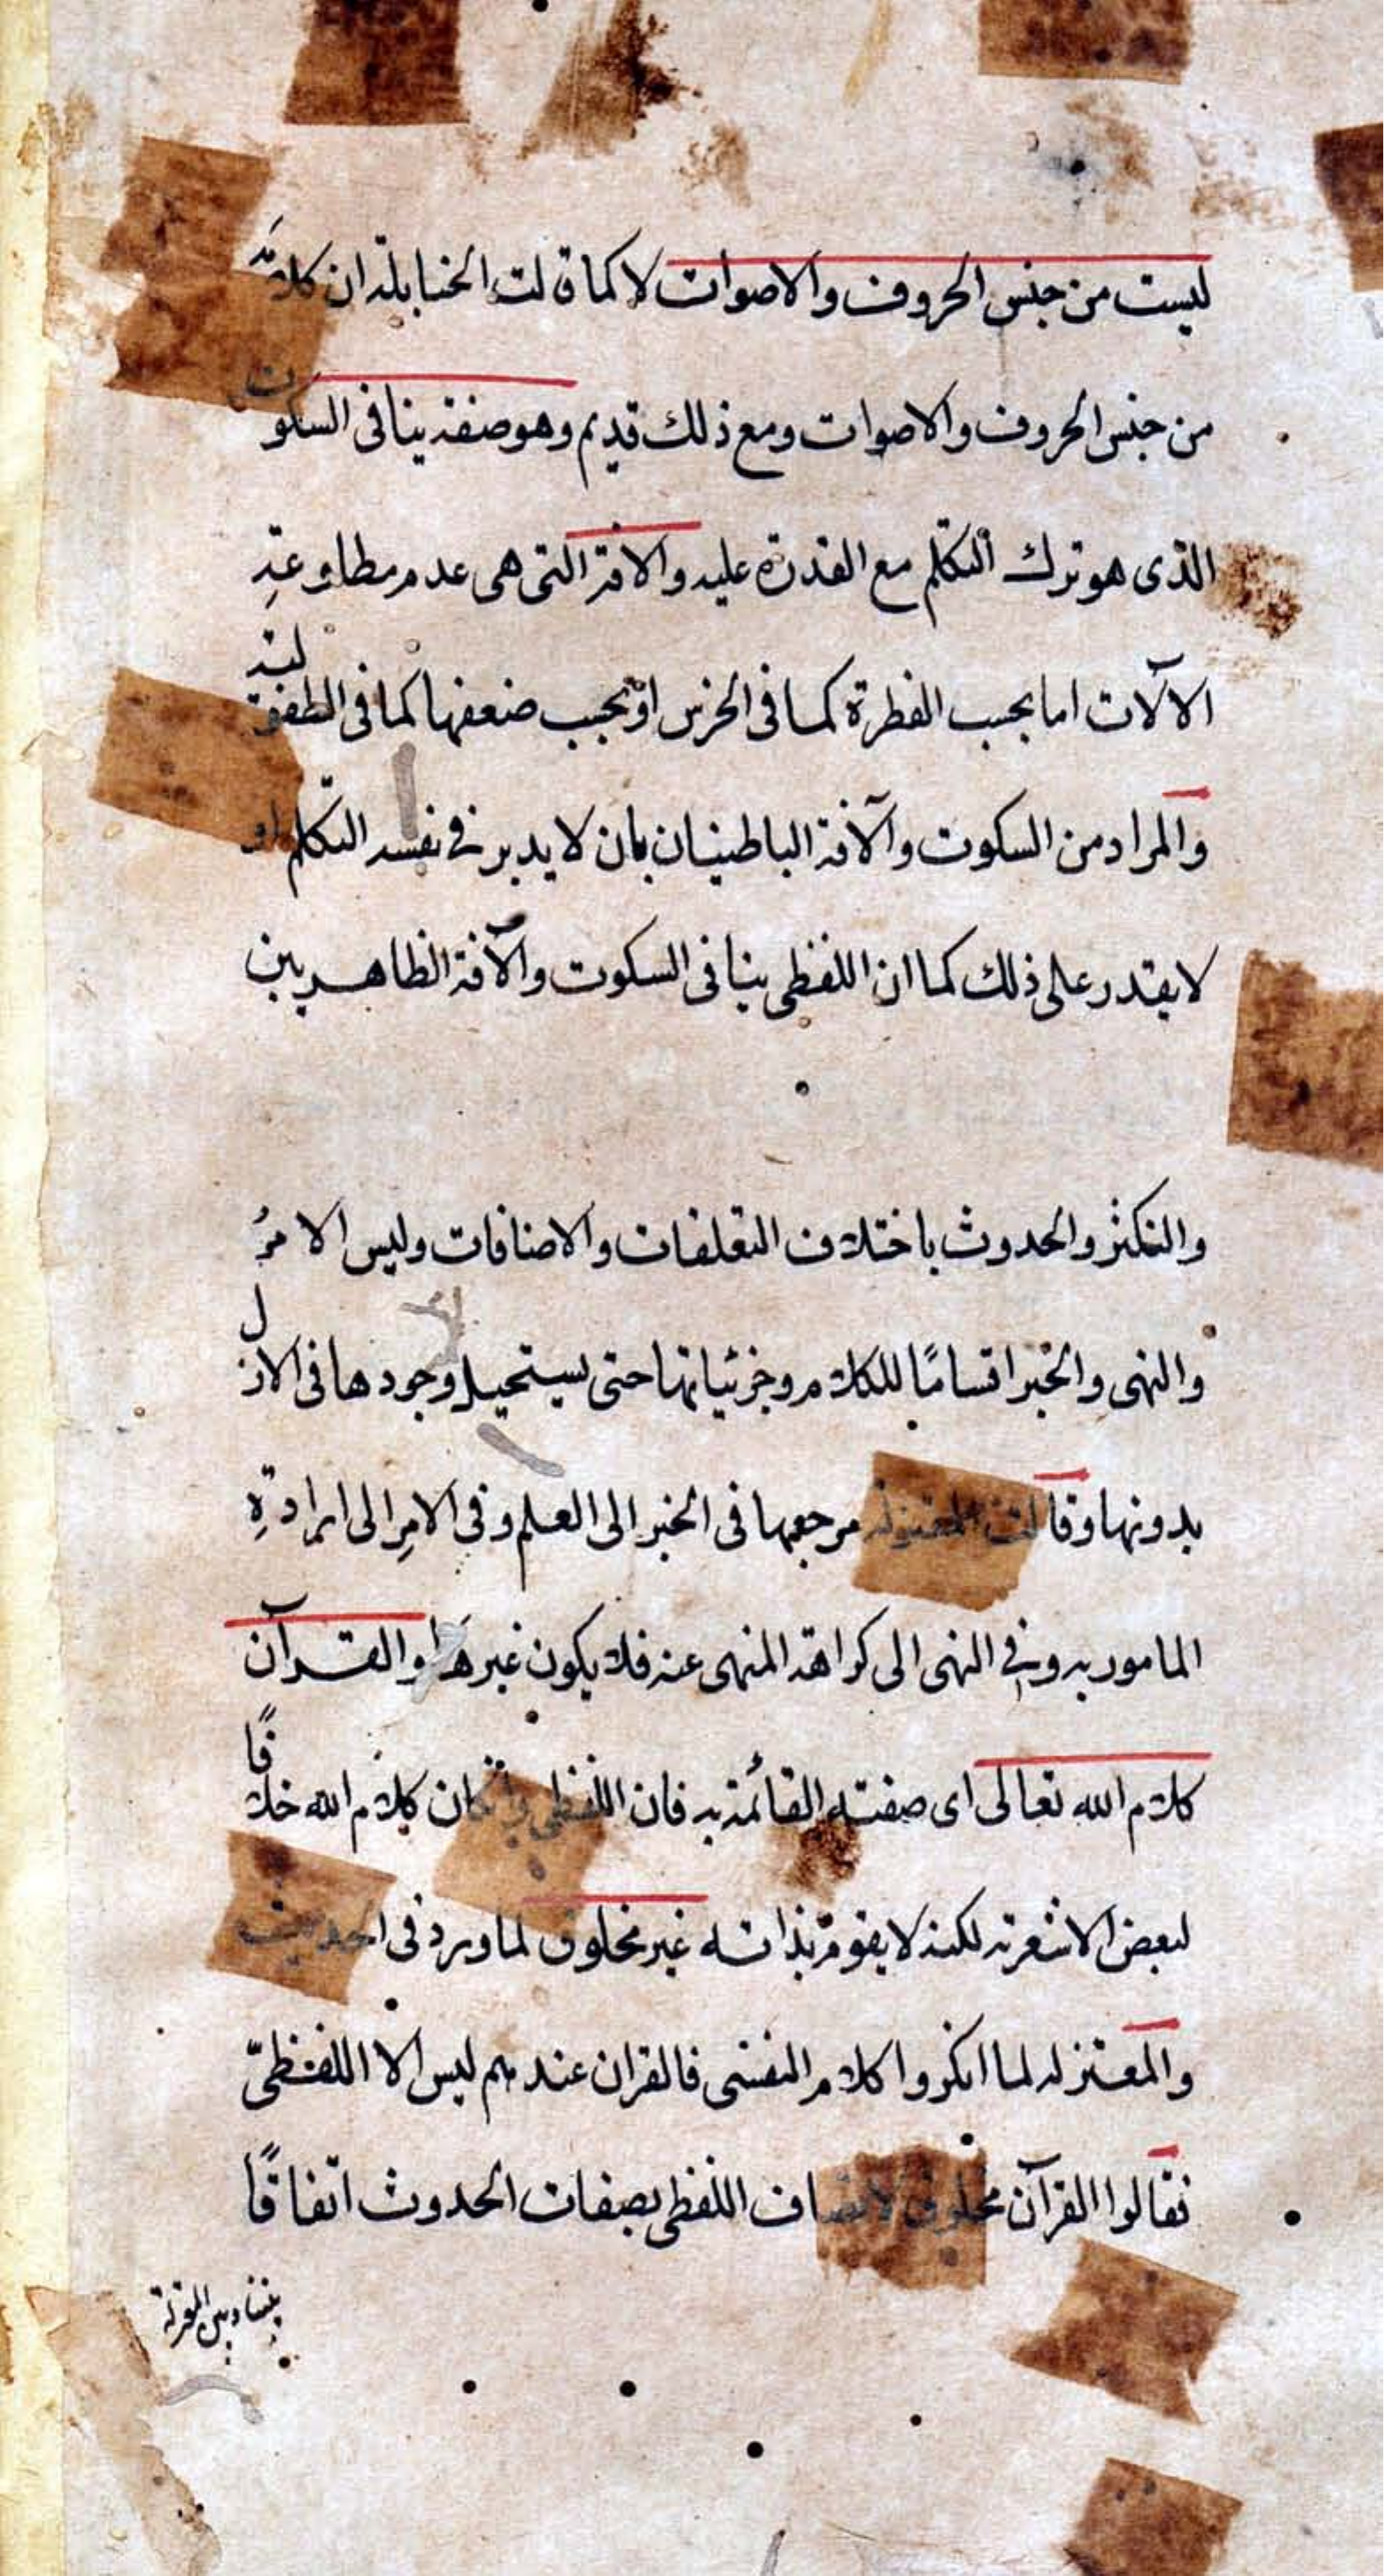 ليست من جنس الحروف والاصوات لا كما قالت الحنابلة ان كلامه
من جنس الحروف والاصوات ومع ذلك قديم وهو صفة ينافى السكوت
الذى هو ترك التكلم مع القدرة عليه والافة التى هى عدم مطاوعة
الآلات اما بحسب الفطرة كما فى الخرس او بحسب ضعفها كما فى الطفولية
والمراد من السكوت والآفة الباطنيان بان لا يدبر فى نفسه التكلم او
لا يقدر على ذلك كما ان اللفظى ينافى السكوت والآفة الظاهريين
والتكثر والحدوث باختلاف التعلقات والاضافات وليس الامرُ
والنهى والخبر اقسامًا للكلام وجزئياتها حتى يستحيل وجودها فى الازل
بدونها وقالت المعتزلة مرجعها فى الخبر الى العلم وفى الامرِ الى ارادةِ
المامور به وفى النهى الى كراهة المنهى عنه فلا يكون غيرهَا والقرآن
كلام الله تعالى اى صفته القائمة به فان اللفظى وان كان كلام الله خلافًا
لبعض الاشعرية لكنه لا يقوم بذاته غير مخلوق لما ورد فى الحديث
والمعتزله لما انكروا كلام النفسى فالقران عندهم ليس الا اللفظىّ
فقالوا القرآن مخلوق لاتصاف اللفظى بصفات الحدوث اتفاقًا
بيننا وبين المعتزلة